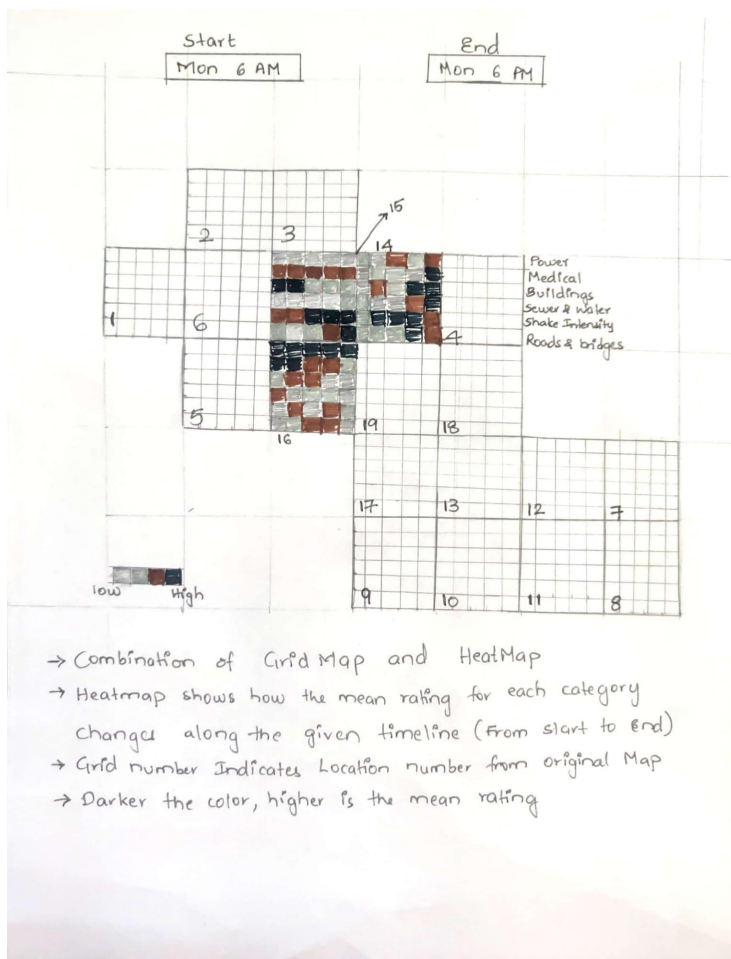 Start
End
Mon 6 AM
Mon 6 PM
15
2
3
14
Power
Medical
Buildings
Sewer & Water
Shake Intensity
Roads & bridges
1
6
4
5
16
19
18
17
13
12
7
low
High
9
10
11
8
→ Combination of Grid Map and HeatMap
→ Heatmap shows how the mean rating for each category
changes along the given timeline (From start to End)
→ Grid number Indicates Location number from original Map
→ Darker the color, higher is the mean rating